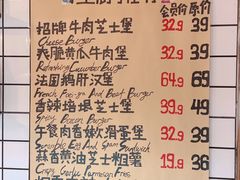 会员价 原价
招牌牛肉芝士堡 32.9 39
Cheese Burger
爽脆黄瓜牛肉堡 32.9 39
Refreshing Cucumber Burger
法国鹅肝汉堡 64.9 69
French Foie-gra And Beef Burger
香辣培根芝士堡 39.9 49
Spicy Bacon Burger
午餐肉香嫩滑蛋堡 32.9 39
Scramble Egg And Spam Sandwich
蒜香黄油芝士粗薯 19.9 36
Crispy Garlic Parmesan Fries